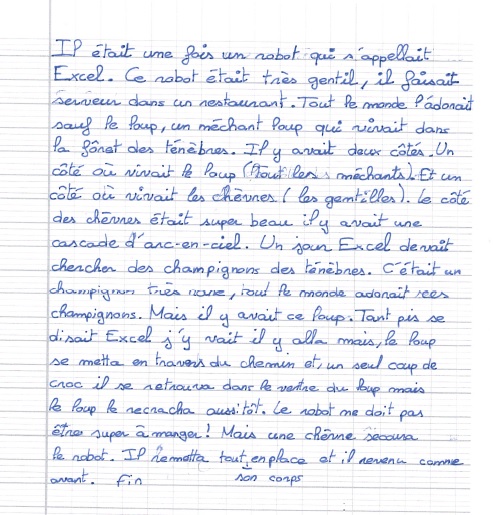 Il était une fois un robot qui s'appellait
Excel. Ce robot était très gentil, il faisait
serveur dans un restaurant. Tout le monde l'adorait
sauf le loup, un méchant loup qui vivait dans
la fôret des ténèbres. Il y avait deux côtés. Un
côté où vivait le loup (tout les méchants). Et un
côté où vivait les chèvres (les gentilles). Le côté
des chèvres était super beau il y avait une
cascade d'arc-en-ciel. Un jour Excel devait
chercher des champignons des ténèbres. C'était un
champignon très rare, tout le monde adorait ces
champignons. Mais il y avait ce loup. Tant pis se
disait Excel j'y vait il y alla mais, le loup
se metta en travers du chemin et, un seul coup de
croc il se retrouva dans le ventre du loup mais
le loup le recracha aussitôt. Le robot ne doit pas
être super à manger! Mais une chèvre secoura
le robot. Il remetta tout en place et il revenu comme
avant. Fin son corps